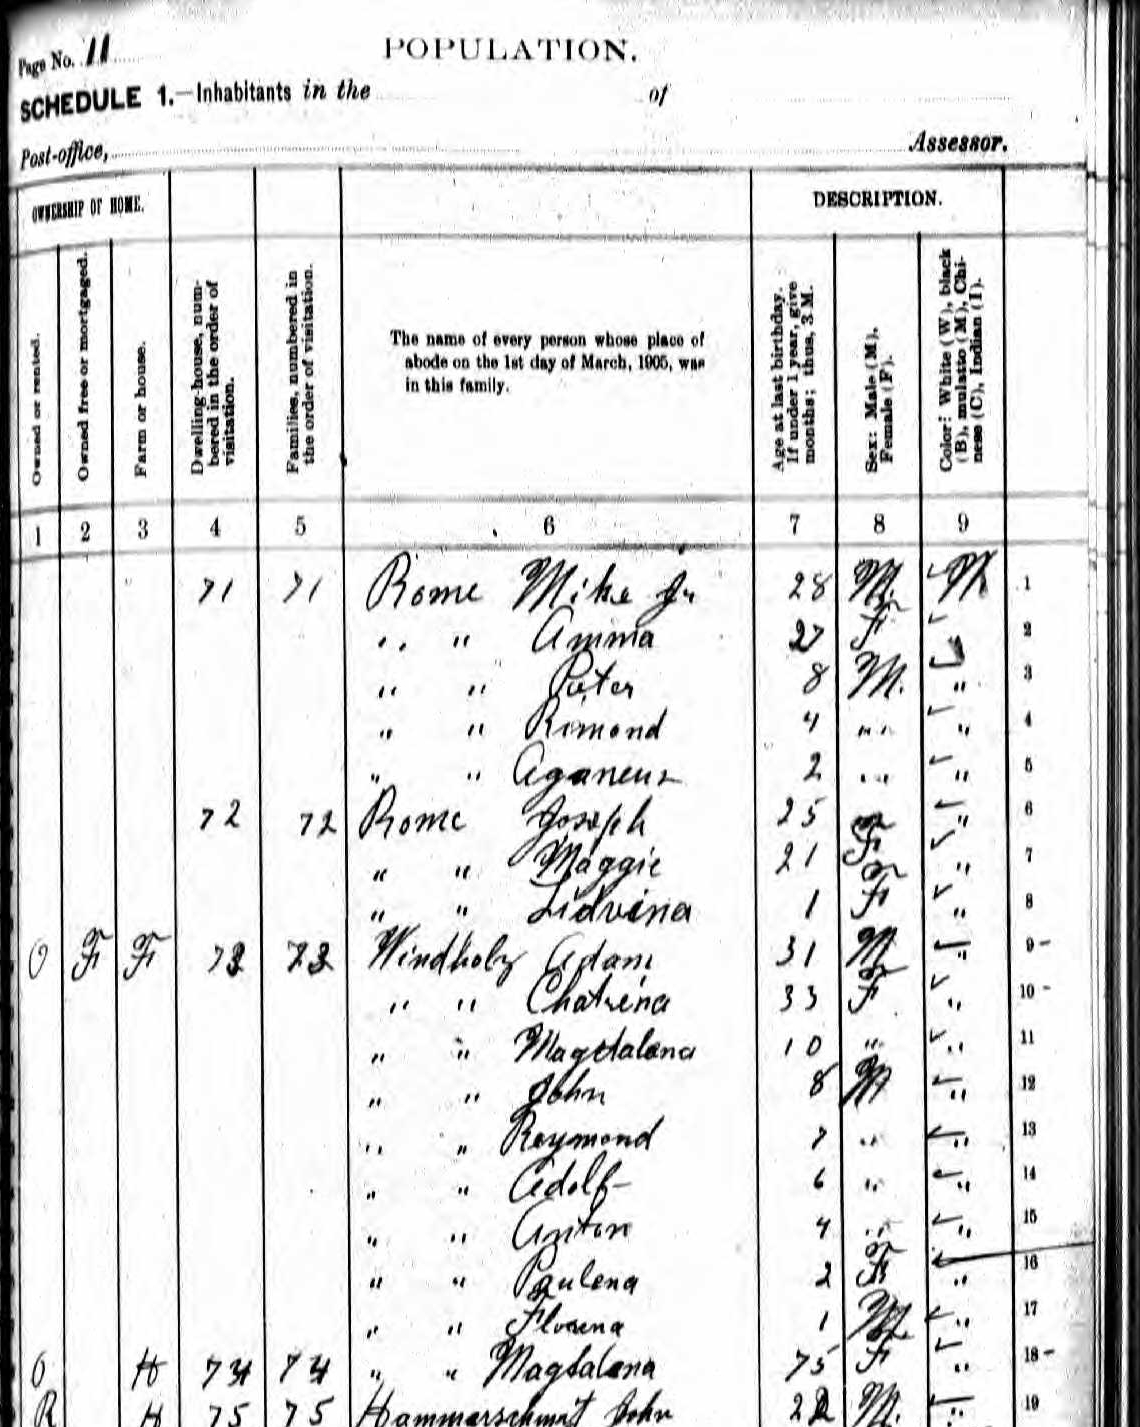 Page No. 11
POPULATION.
SCHEDULE 1.—Inhabitants in the of
Post-office, Assessor.
OWNERSHIP OF HOME. DESCRIPTION.
Owned or rented.
Owned free or mortgaged.
Farm or house.
Dwelling-house, num-
bered in the order of
visitation.
Families, numbered in
the order of visitation.
The name of every person whose place of
abode on the 1st day of March, 1905, was
in this family.
Age at last birthday.
If under 1 year, give
months; thus, 3 M.
Sex: Male (M),
Female (F).
Color: White (W), black
(B), mulatto (M), Chi-
nese (C), Indian (I).
1 2 3 4 5 6 7 8 9
71 71 Rome Mike Jr 28 M. W 1
" " Amma 27 F " 2
" " Peter 8 M. " 3
" " Rimond 4 " " 4
" " 2 " " 5
72 72 Rome Joseph 25 " 6
" " Maggie 21 F " 7
" " Lidvina 1 F " 8
O F F 73 73 Windholz Adam 31 M " 9-
" " Chatrina 33 F " 10-
" " Magdalena 10 " " 11
" " John 8 M " 12
" " Reymond 7 " " 13
" " Adolf 6 " " 14
" " Anton 4 " " 15
" " Paulena 2 F " 16
" " 1 M. " 17
O H 74 74 " " Magdalena 75 F " 18-
R H 75 75 Hammerschmit John 22 M. " 19